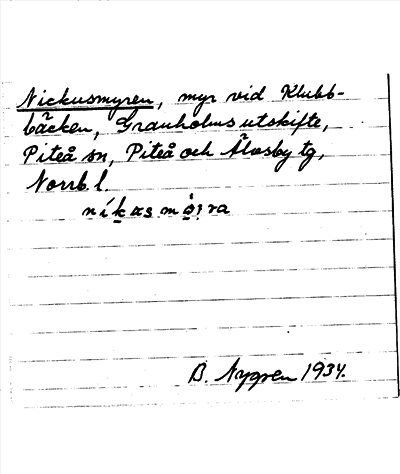 Nickusmyren, myr vid Klubb-
bäcken, Granholms utskifte,
Piteå sn, Piteå och Älvsby tg,
Norrb. l.
B. Nygren 1934.